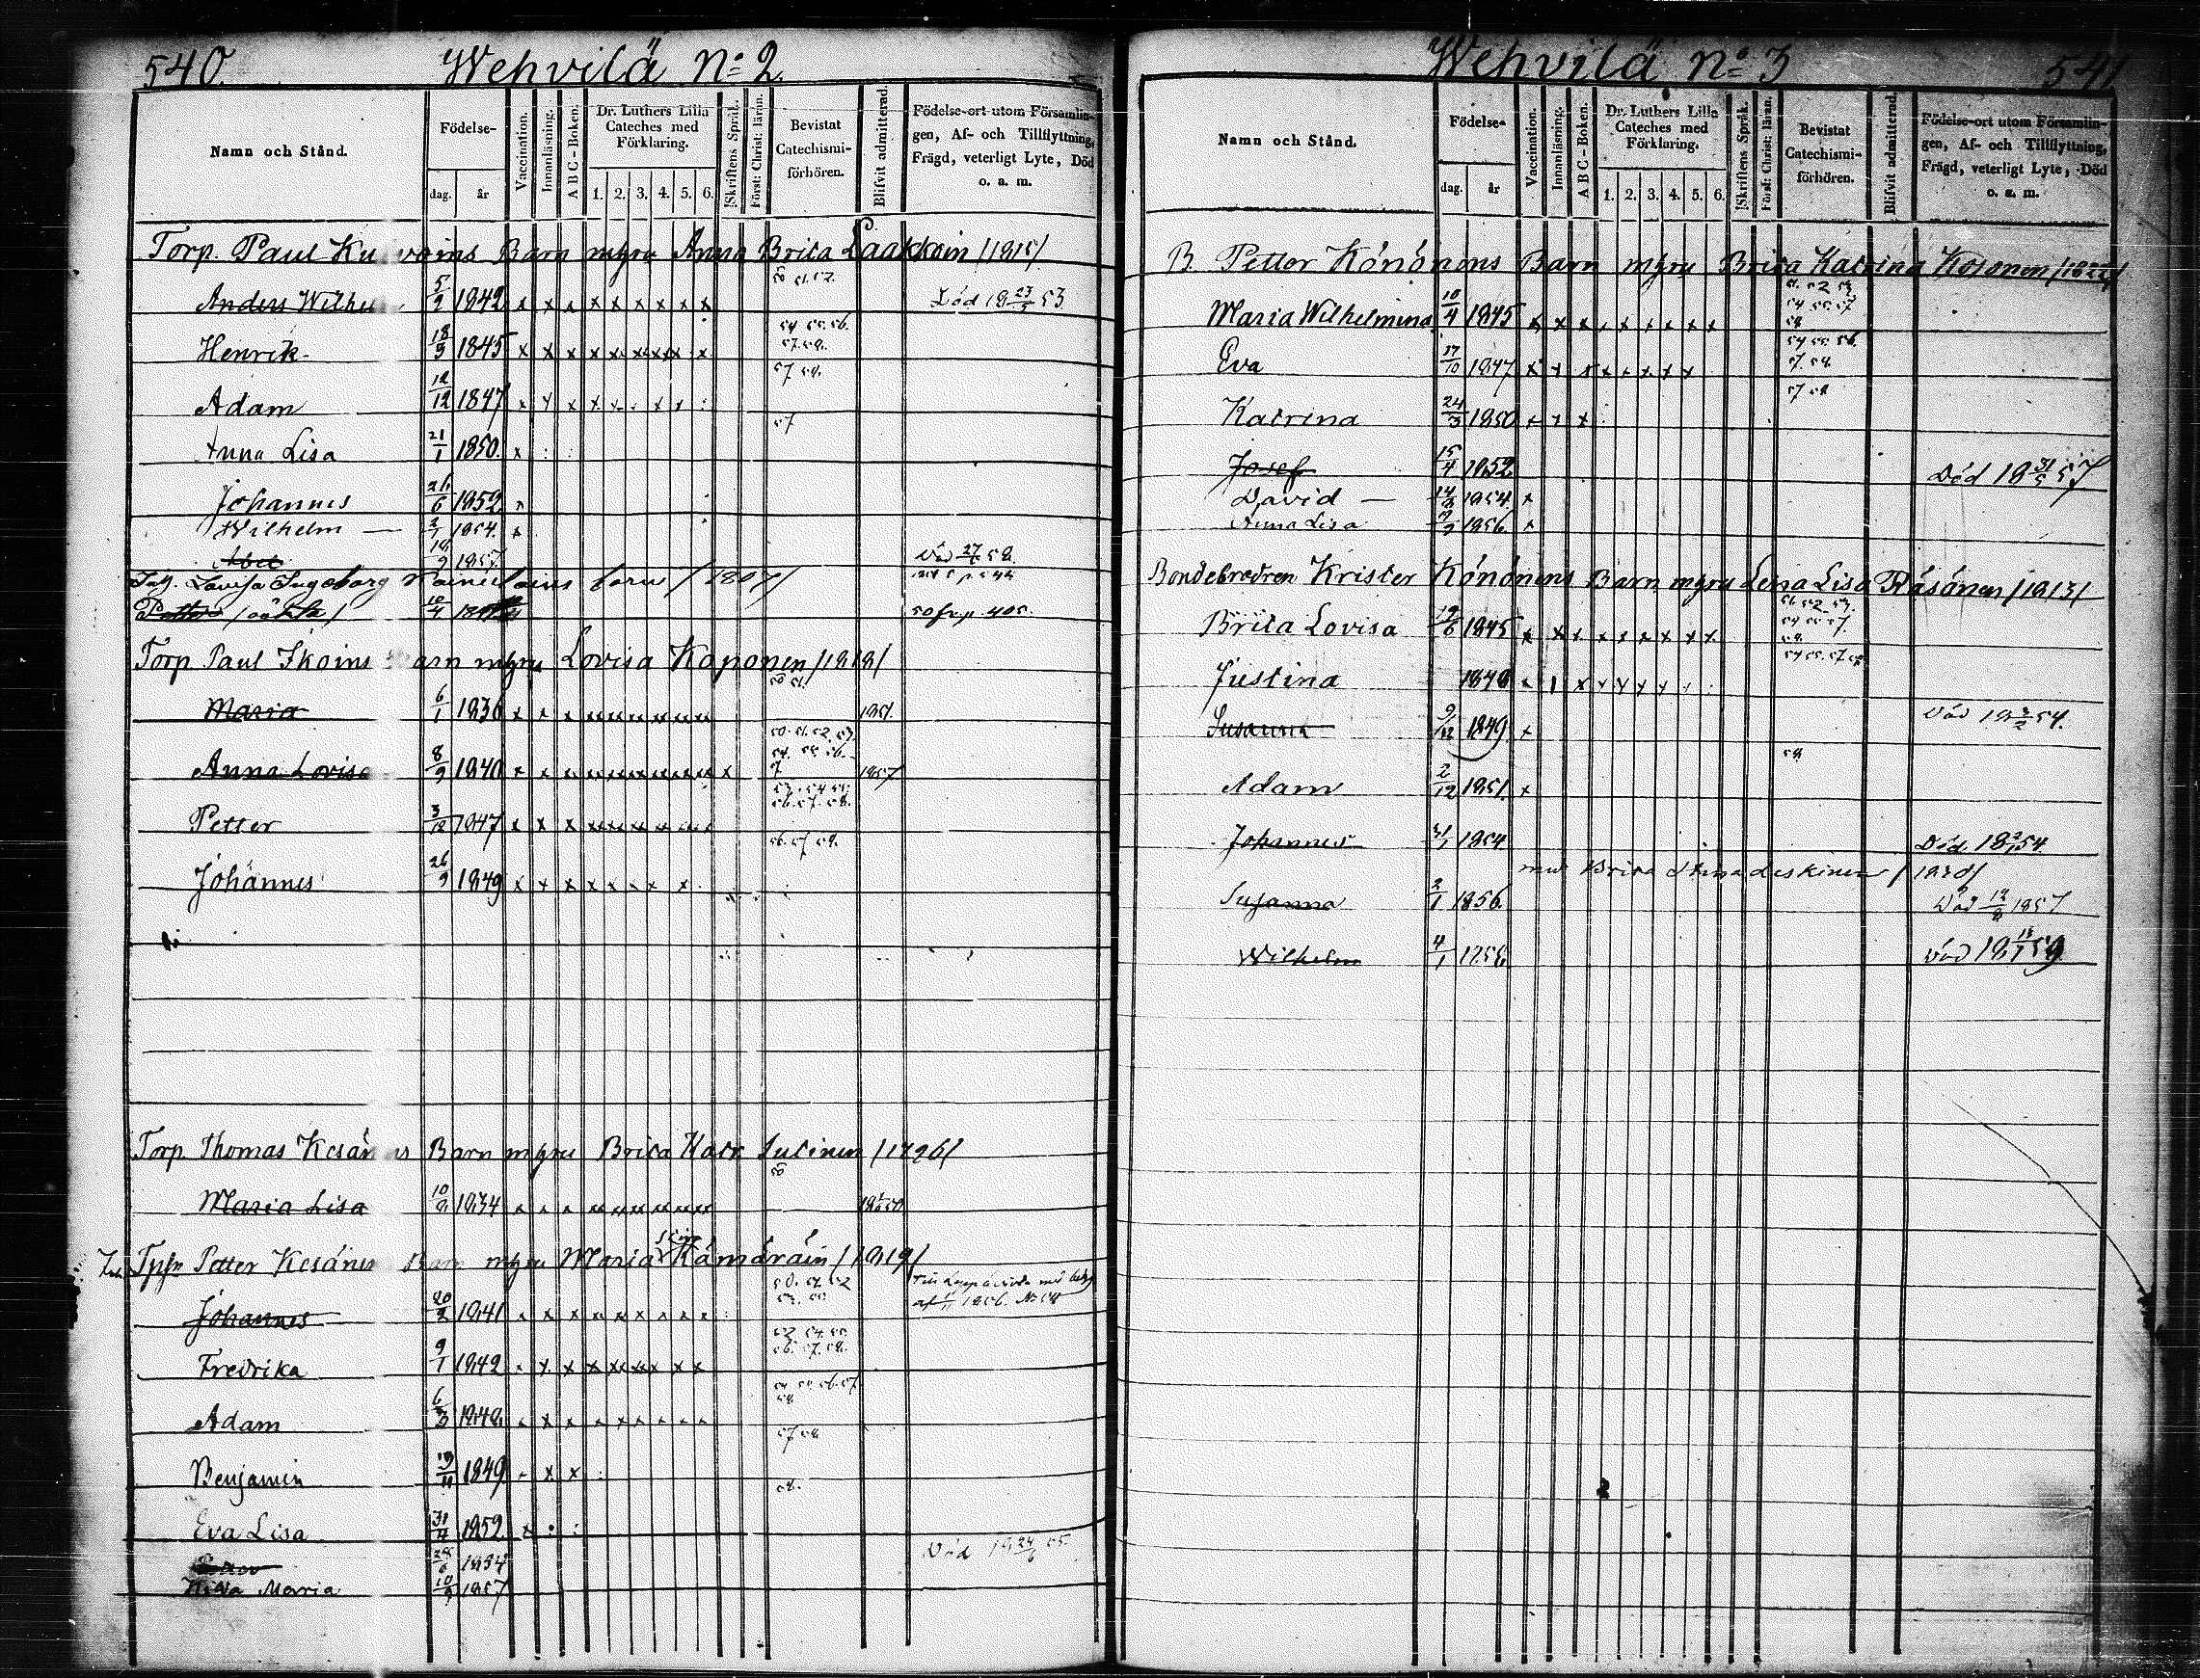 540. Wehvilä No 2.
Namn och Stånd.
Födelse-
dag. år
Vaccination.
Innanläsning.
A B C - Boken.
Dr. Luthers Lilla Cateches med Förklaring.
1. 2. 3. 4. 5. 6.
Skriftens Språk.
Först: Christ: lärin.
Bevistat Catechismi-förhören.
Blifvit admitterad.
Födelse-ort utom Församlin-
gen, Af- och Tillflyttning,
Frägd, veterligt Lyte, Död
o. a. m.
Torp. Paul Barn mğru Anna Brita Laakkoin /1815/
Anders 5/2 1842 x x x x x x x x x 50 51. 52. Död 18 23/5 53
Henrik 18/5 1845 x x x x x x x x x 54 55 56. 57. 58.
Adam 12/12 1847 x x x x x x x 57 58.
Anna Lisa 21/1 1850. x 57
Johannes 26/6 1852 x
Wilhelm — 2/1 1854. x
Abel 18/9 1857. Död 27/5 58.
Lovisa Ingeborg barn /1807/
Petter 10/4 50 fr. p. 405.
Torp Paul Ikoins Barn mğru Lovisa Koponen /1818/
Maria 6/1 1836 x x x x x x x x x 50 51. 1851.
Anna Lovisa 8/9 1840 x x x x x x x x x x 50. 51. 52. 53. 54. 55 56. 7 1857
Petter 3/12 1847 x x x x x x x x x 53. 54 55 56. 57. 58.
Johannes 26/9 1849 x x x x x x x x 56. 57 58.
Torp. Thomas Barn mğru Brita Katr. Sutinen /1796/
Maria Lisa 10/8 1834 x x x x x x x x x 50 1850
Petter Kesänen Barn mğru Maria Stina Kämäräin /1819/
Johannes 20/2 1841 x x x x x x x x x 50. 51 52 53. 55 af 1/11 1856. No 58
Fredrika 9/1 1842 x x x x x x x x 53 54 55 56. 57. 58.
Adam 6/3 1848 x x x x x x x x x 54 55 56. 57. 58
Benjamin 19/11 1849 x x x 57 58
Eva Lisa 31/7 1852 x 58.
28/6 1854 Död 18 24/6 55.
Maria 10/9 1857
Wehvilä No 3 541
Namn och Stånd.
Födelse-
dag. år
Vaccination.
Innanläsning.
A B C - Boken.
Dr. Luthers Lilla Cateches med Förklaring.
1. 2. 3. 4. 5. 6.
Skriftens Språk.
Först: Christ: lärin.
Bevistat Catechismi-förhören.
Blifvit admitterad.
Födelse-ort utom Församlin-
gen, Af- och Tillflyttning,
Frägd, veterligt Lyte, Död
o. a. m.
B. Petter Könönens Barn mğru Brita Katrina
Maria Wilhelmina 10/4 1845 x x x x x x x x x 51. 52 53 54 55 57 58
Eva 17/10 1847 x x x x x x x x 54 55 56. 57. 58.
Katrina 24/3 1850 x x x 57 58
Josef 15/4 1852 Död 18 31/5 57
David — 14/2 1854 x
Anna Lisa 1856. x
Bondebrodren Krister Könönens Barn mğru Lena Lisa Räsänen /1813/
Brita Lovisa 19/6 1845 x x x x x x x x x 51 52 53. 54 55 57. 58.
Justina 1848 x x x x x x x 54 55. 57 58
Susanna 9/12 1849 x Död 18 54.
Adam 2/12 1851. x 58
Johannes 31/1 1854 Död 18 54.
med Brita Stina Leskinen /1830/
Susanna 2/1 1856. Död 19/8 1857
Wilhelm 4/1 1858 Död 18 13/1 59